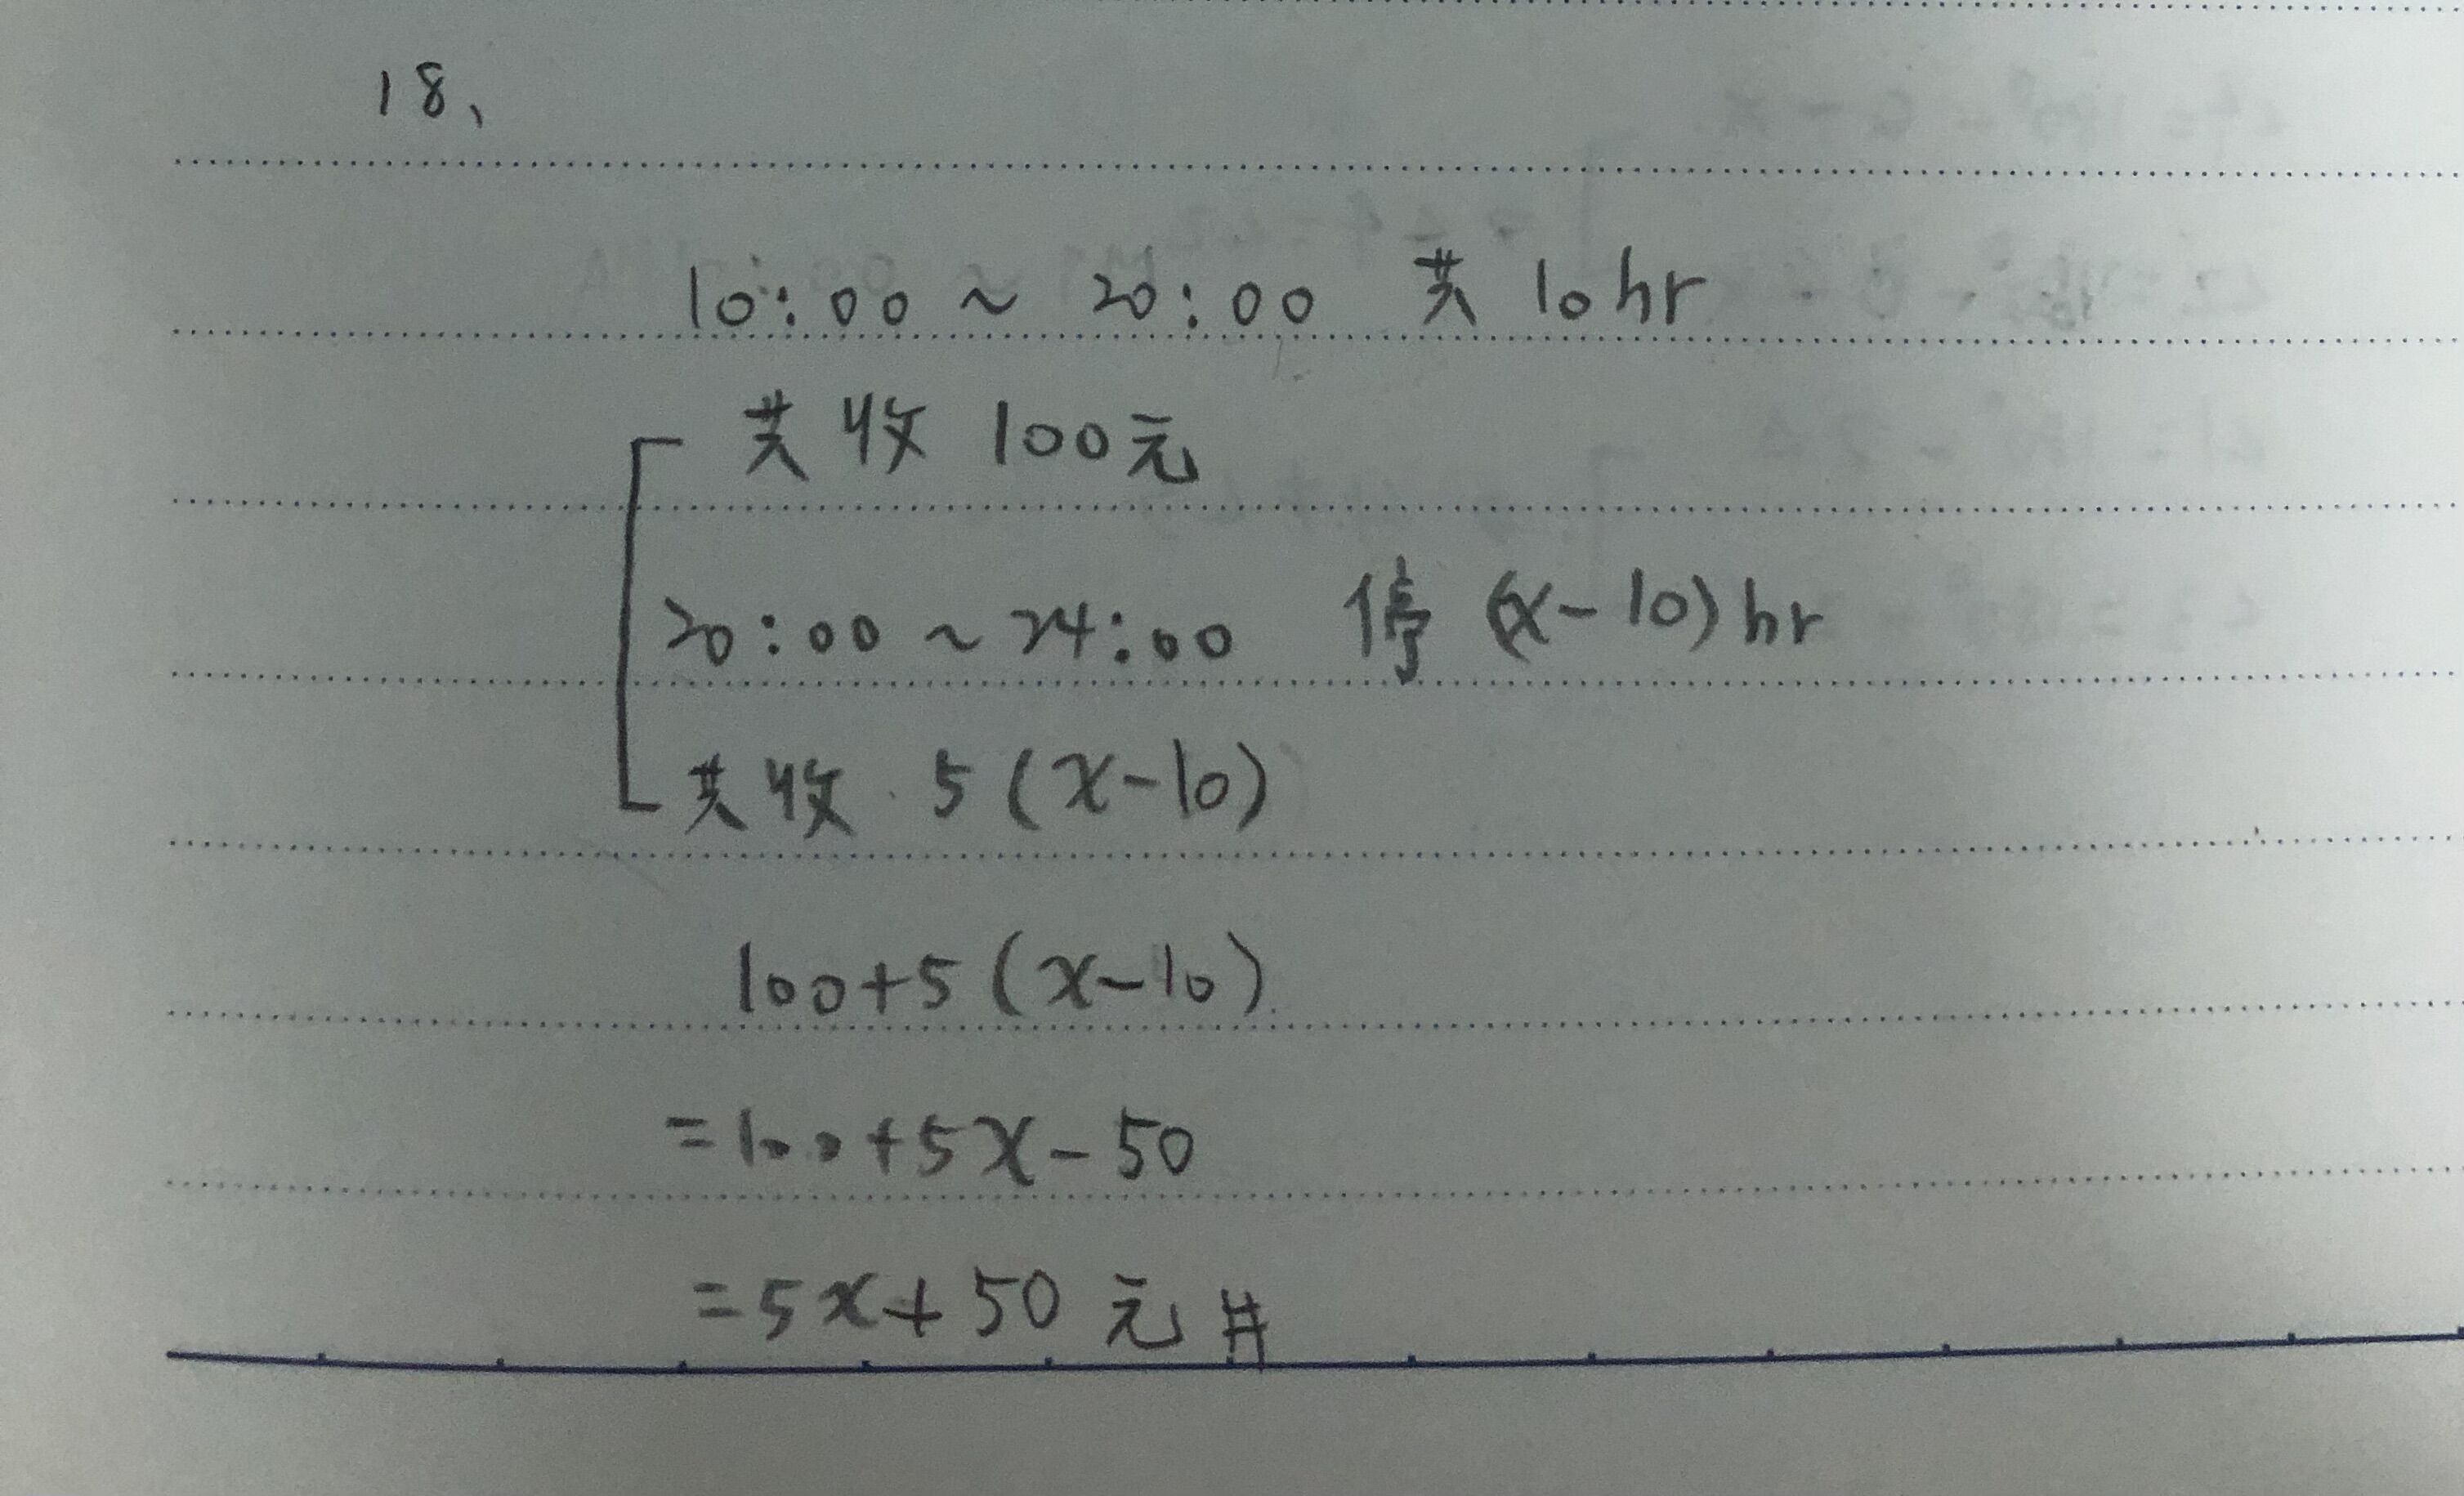 18、
10:00 ~ 20:00 共 10hr
共收 100元
20:00 ~ 24:00 停 (x-10)hr
共收 5(x-10)
100+5(x-10)
=100+5x-50
=5x+50 元 #